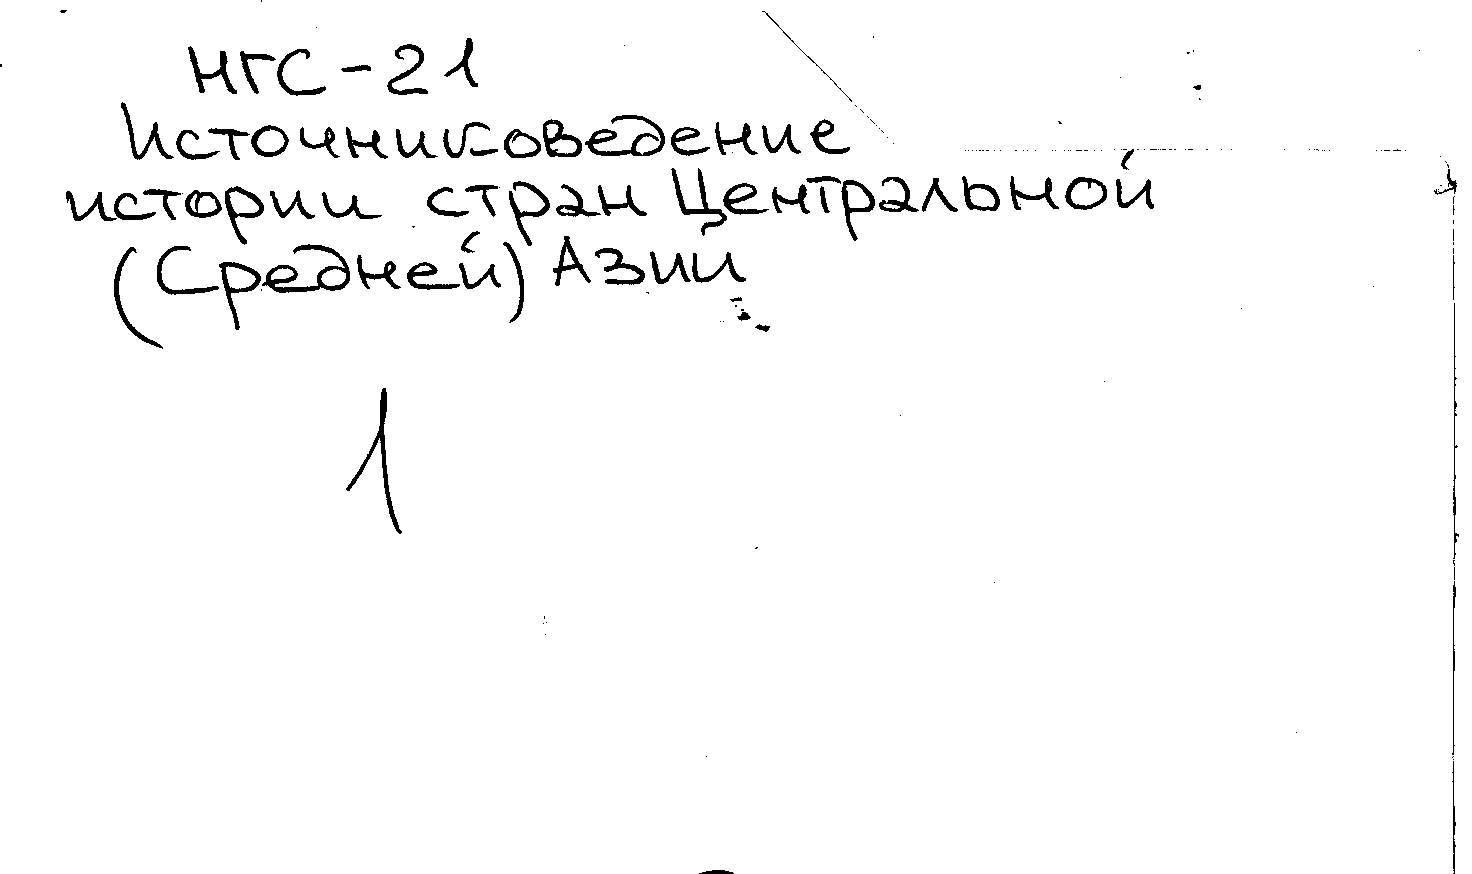 НГС-21
Источниковедение
истории стран Центральной
(Средней) Азии
1